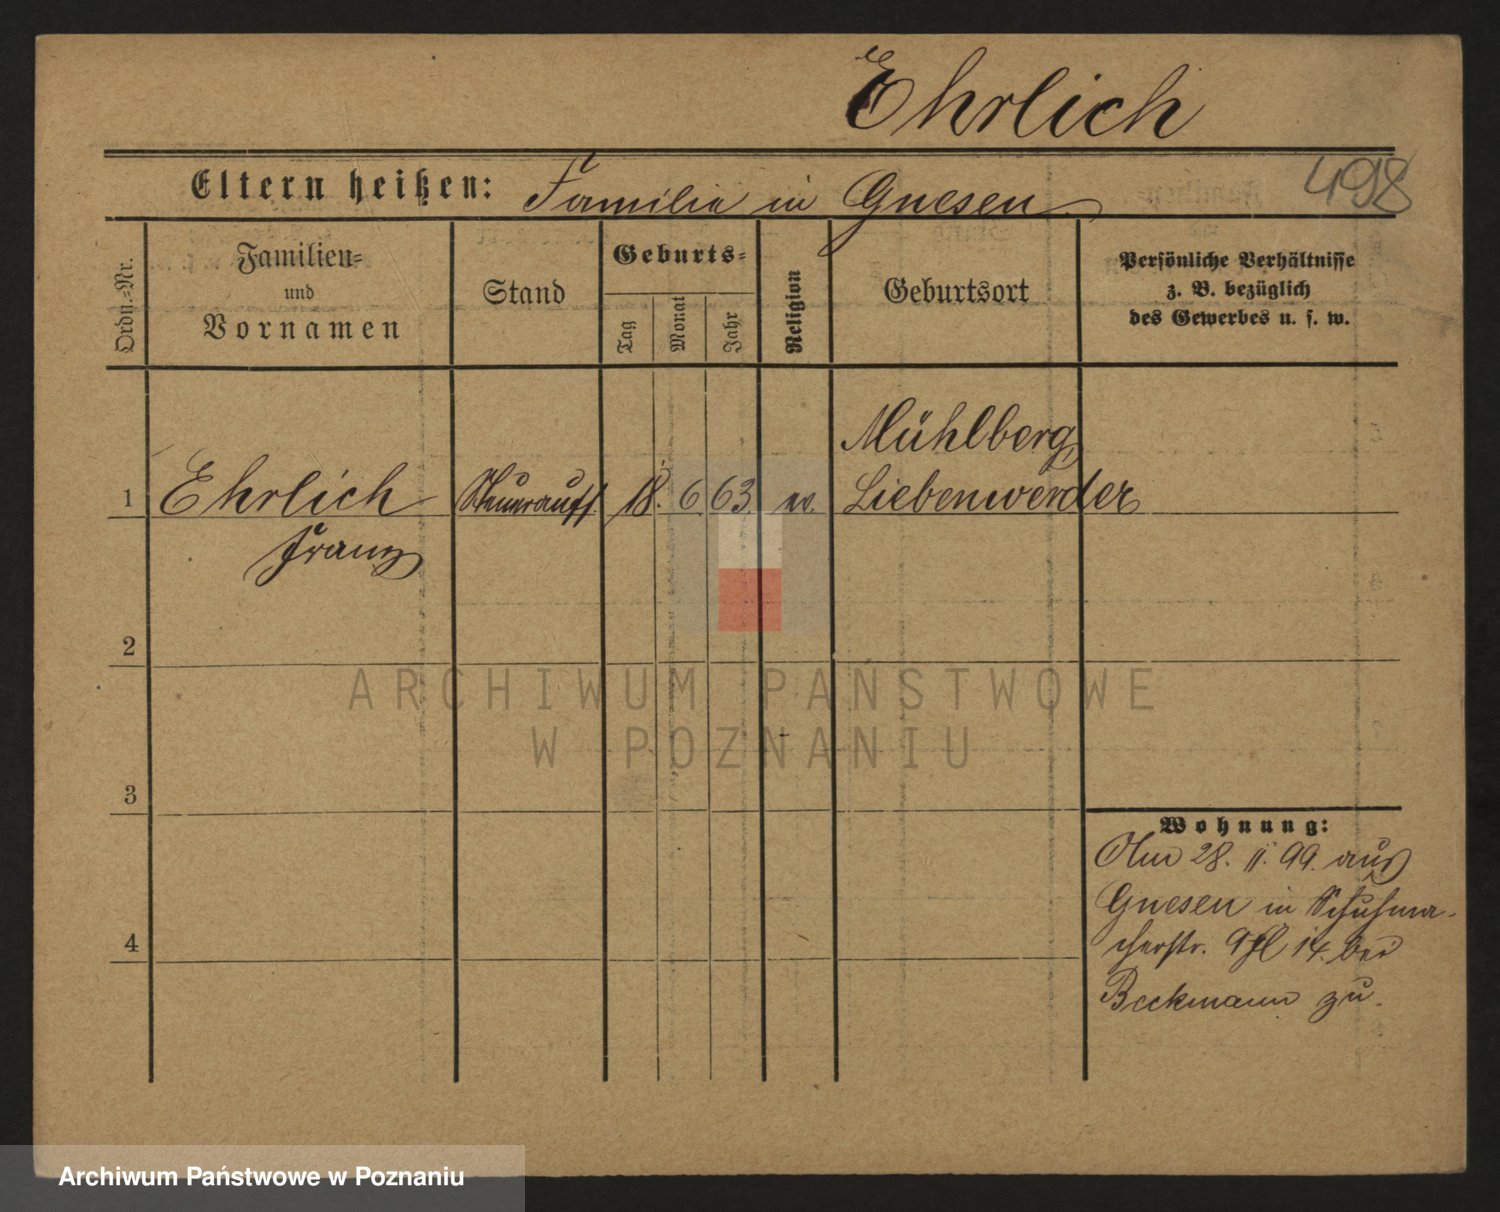 Ehrlich
498
Eltern heißen: Familie in Gnesen
Ordn.=Nr.
Familien=
und
Vornamen
Stand
Geburts=
Tag
Monat
Jahr
Religion
Geburtsort
Persönliche Verhältnisse
z. B. bezüglich
des Gewerbes u. s. w.
Mühlberg
1 Ehrlich Steuerauff. 18. 6. 63. ev. Liebenwerder
Franz
2
ARCHIWUM PAŃSTWOWE
W POZNANIU
3
Wohnung:
Am 28. 11. 99. aus
Gnesen in Schuhma-
cherstr. 14. bei
Beckmann zu.
4
Archiwum Państwowe w Poznaniu